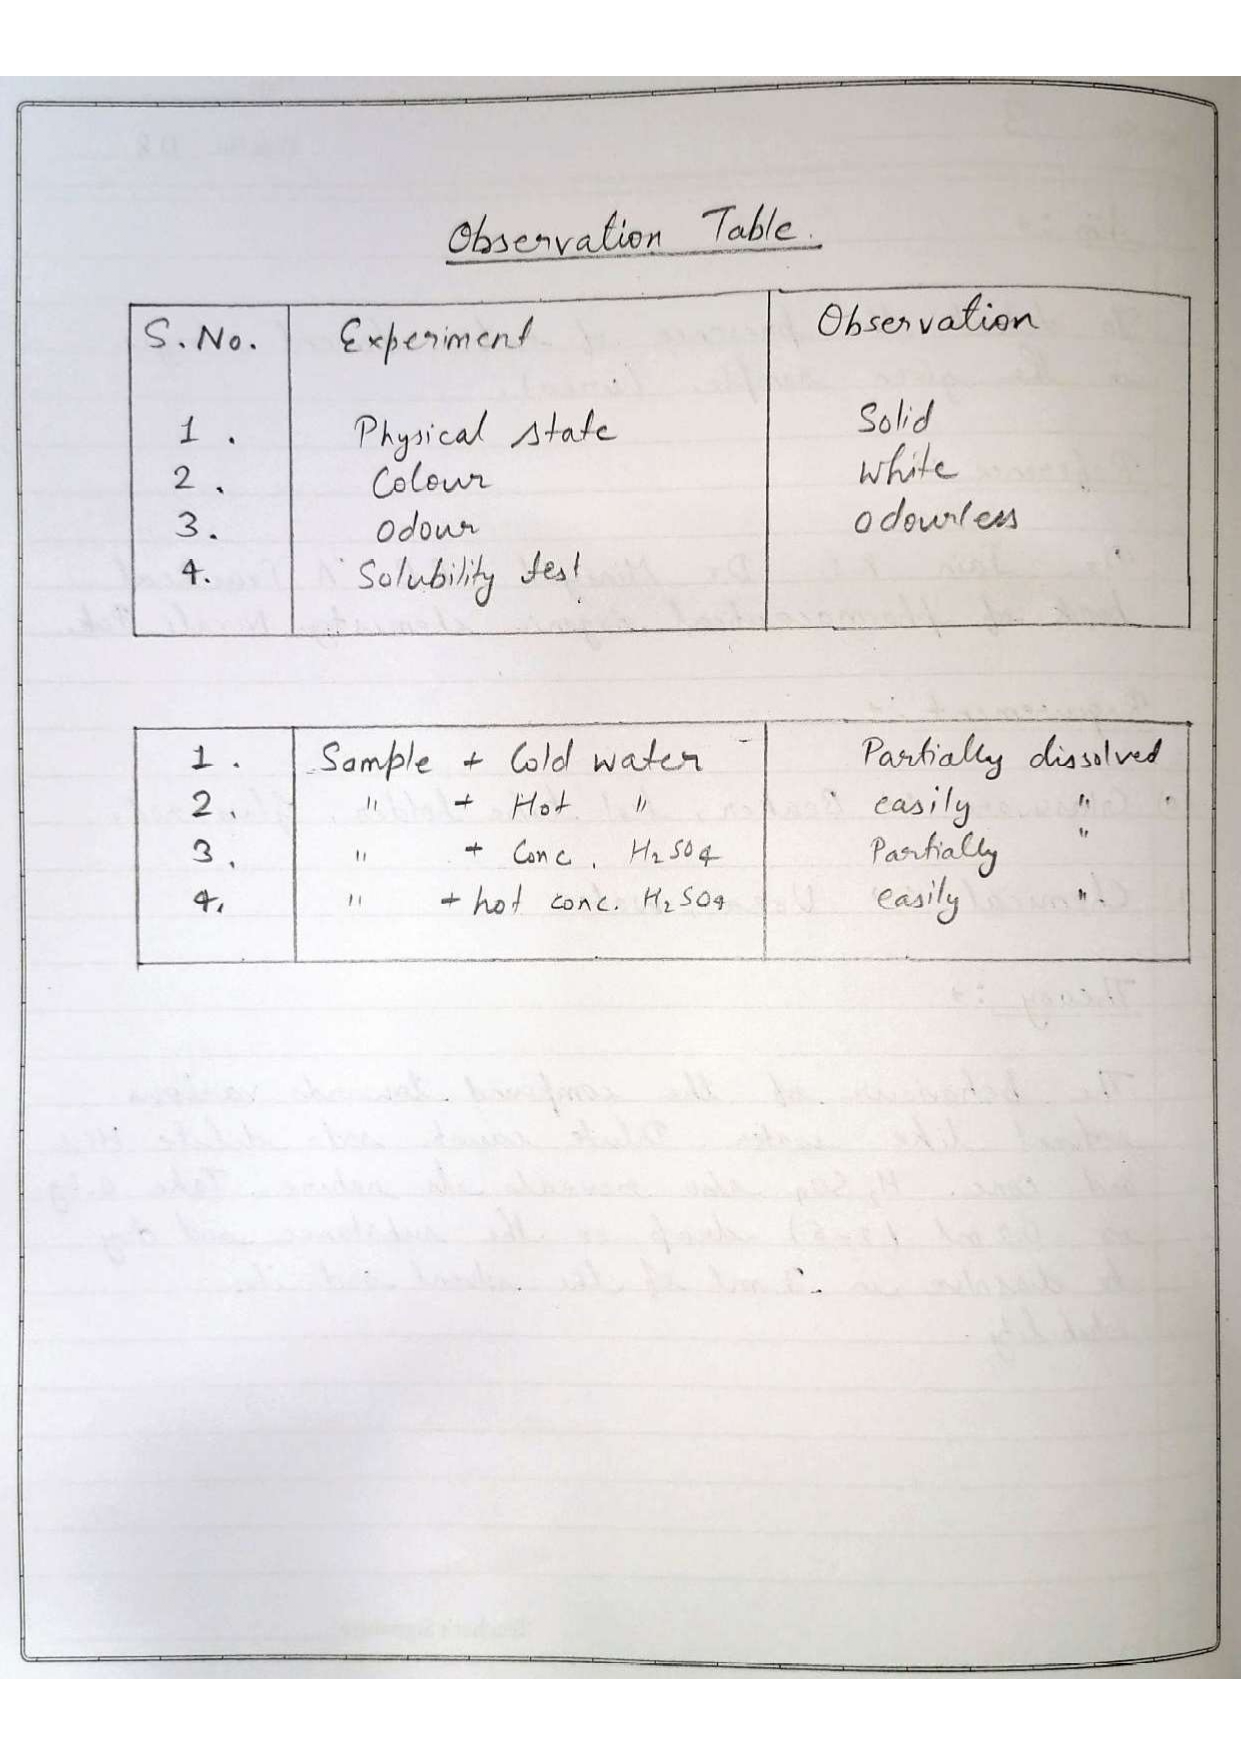 Observation Table.
S. No. Experiment Observation
1. Physical state Solid
2. Colour white
3. odour odourless
4. Solubility test
1. Sample + Cold water Partially dissolved
2. " + Hot " easily "
3. " + Conc. H₂SO₄ Partially "
4. " + hot conc. H₂SO₄ easily ".